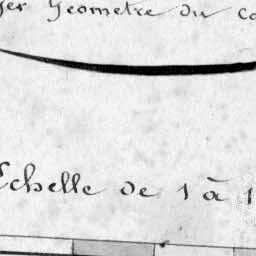 Geometre du
Echelle de 1 à 1